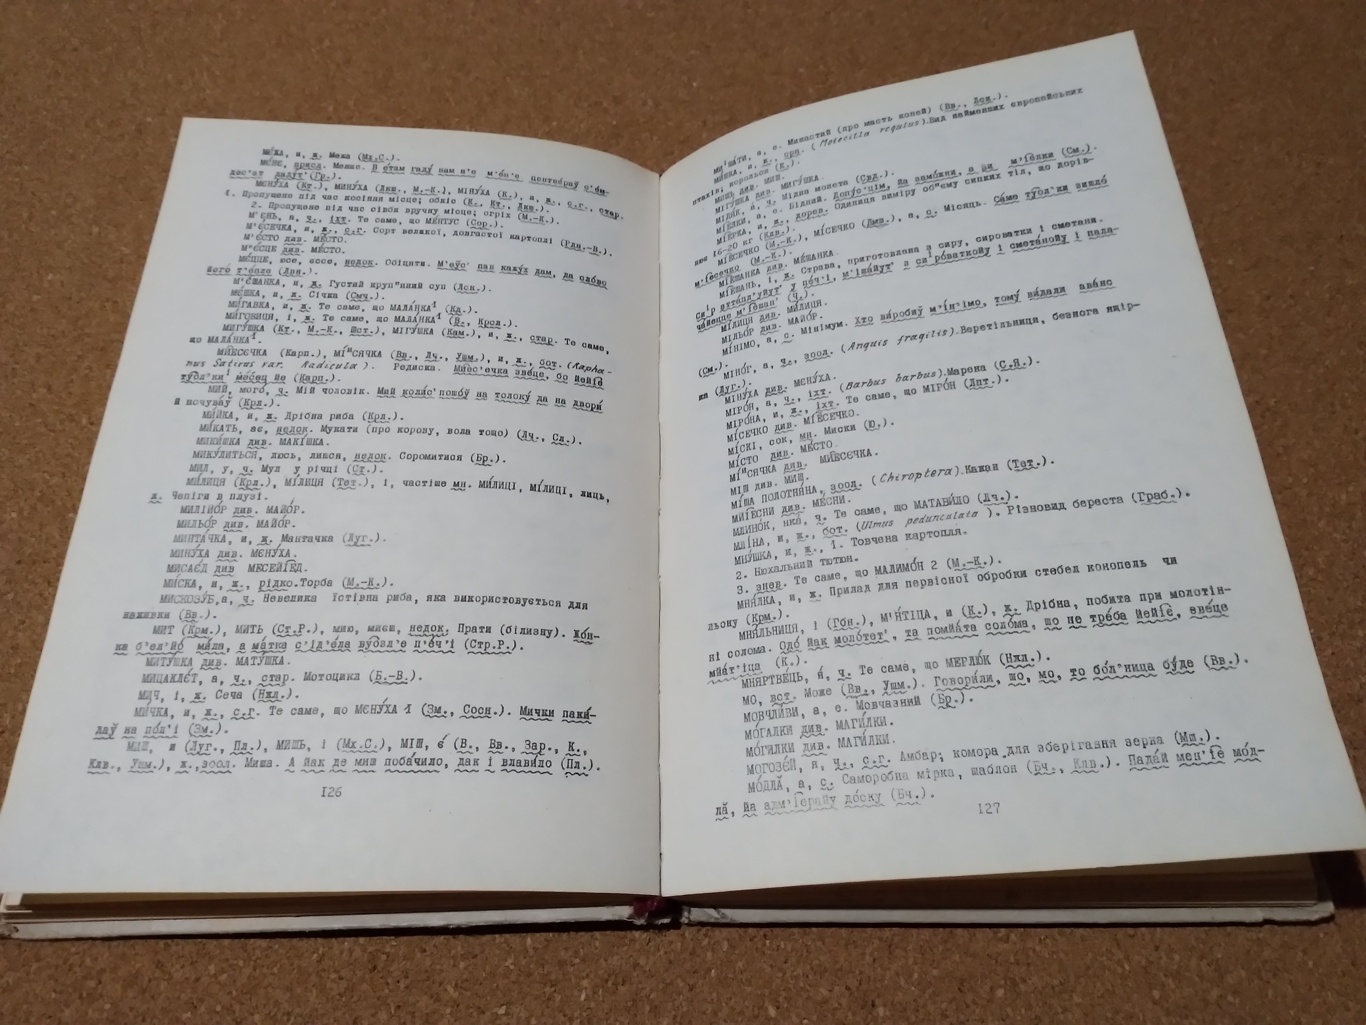 МЄ́ЖА, и, ж. Межа (Мх.С.).
МЄ́НЕ, присл. Менше. В етам гаду́
МЄНУ́ХА (Кт.), МИНУ́ХА (Лип., М.-К.), МІНУ́ХА (К.), и, ж., с.г., стар.
1. Пропущене під час косіння місце; обліс (К., Кт., Лип.).
2. Пропущене під час сівби вручну місце; огріх (М.-К.).
М'ЄНЬ, а, ч., іхт. Те саме, що МЕ́НТУС (Сор.).
М'Є́СЕЧКА, и, ж., с.г. Сорт великої, довгастої картоплі
М'Є́СТО див. МЕ́СТО.
М'Є́СЦЕ див. МЕ́СТО.
недок. Обіцяти. пан кажу́х дам, да
його́
М'Є́ШАНКА, и, ж. Густий круп"яний суп (Лск.).
МЄ́ШКА, и, ж. Січка (Смч.).
МИ́ГАВКА, и, ж. Те саме, що МАЛА́НКА¹ (Кд.).
МИГОНИ́ЦЯ, і, ж. Те саме, що МАЛА́НКА¹ (В., Крол.).
МИГУ́ШКА (Кт., М.-К., Шст.), МІГУ́ШКА (Кам.), и, ж., стар. Те саме,
що МАЛА́НКА¹.
МИ́ЕСЄЧКА (Карп.), МІ́ИСЯЧКА (Вв., Лч., Ушм.), и, ж., бот. (Rapha-
nus Sativus var. Radicula). Редиска.
(Карп.).
МИЙ, мого́, ч. Мій чоловік. Мий на толоку́ да на двори́
й ночува́ў (Крл.).
МИ́ЙКА, и, ж. Дрібна риба (Крл.).
МИ́КАТЬ, ає, недок. Мукати (про корову, вола тощо) (Лч., Сл.).
МИКИ́ШКА див. МАКІ́ШКА.
МИКУ́ЛИТЬСЯ, люсь, лився, недок. Соромитися (Бр.).
МИЛ, у, ч. Мул у річці (Ст.).
МИ́ЛИЦЯ (Крл.), МІ́ЛИЦЯ (Тет.), і, частіше мн. МИ́ЛИЦІ, МІ́ЛИЦІ, лиць,
ж. Чепіги в плузі.
МИЛІЙО́Р див. МАЙО́Р.
МИЛЬО́Р див. МАЙО́Р.
МИНТА́ЧКА, и, ж. Мантачка (Луг.).
МИНУ́ХА див. МЄНУ́ХА.
МИСАЄ́Д див МЕСЕЙІЄ́Д.
МИ́СКА, и, ж., рідко.Торба (М.-К.).
МИСКОЗУ́Б,а, ч. Невелика їстівна риба, яка використовується для
наживки (Вв.).
МИТ (Крм.), МИТЬ (Ст.Р.), мию, миєш, недок. Прати (білизну). Жо́н-
ки б'ел'йо́ ми́ла, а ма́тка с'ід'е́ла ву́бал'е п'е́ч'і (Стр.Р.).
МИТУ́ШКА див. МАТУ́ШКА.
МИЦАКЛЄ́Т, а, ч., стар. Мотоцикл (Б.-В.).
МИЧ, і, ж. Сеча (Нхл.).
МИ́ЧКА, и, ж., с.г. Те саме, що МЄНУ́ХА 1 (Зм., Сосн.). Мички паки́-
даў на по́л'і (Зм.).
МИШ, и (Луг., Пл.), МИШЬ, і (Мх.С.), МІШ, е́ (В., Вв., Зар., К.,
Клв., Ушм.), ж.,зоол. Миша. А йак де миш поба́чило, дак і влави́ло (Пл.).
126
МИША́ТИ, а, е. Мишастий (про масть коней) (Вв., Лск.).
МИ́ШКА, и, ж., орн. (Motacilla regulus).Вид найменших європейських
птахів; корольок (К.).
МИШЬ див. МИШ.
МІГУ́ШКА див. МИГУ́ШКА.
ч. Мідна монета (Свд.).
а, е. Бідний. (См.).
МІЕ́РКА, и, ж., дорев. Одиниця виміру об'єму сипких тіл, що дорів-
нює 16-20 кг (Клв.).
МІ́ЕСЕЧКО (М.-К.), МІ́СЕЧКО (Лпш.), а, с. Місяць. Са́ме
(М.-К.).
МІЕ́ШАНКА див. МЕ́ШАНКА.
МІ́ЕШАНЬ, і, ж. Страва, приготовлена з сиру, сироватки і сметани.
у п'е́ч'і, і смета́ной̆у і
(Ч.).
МІ́ЛИЦЯ див. МИ́ЛИЦЯ.
МІЛЬО́Р див. МАЙО́Р.
МІ́НІМО, а, с. Мінімум. Хто ви́робиў м'ін'імо, тому́ ви́дали ава́нс
(См.).
МІНО́Г, а, ч., зоол. (Anguis fragilis).Веретільниця, безнога ящір-
ка (Луг.).
МІНУ́ХА див. МЄНУ́ХА.
МІРО́Н, а, ч., іхт. (Barbus barbus).Марена (С.Я.).
МІРО́НА, и, ж., іхт. Те саме, що МІРО́Н (Лпт.).
МІ́СЕЧКО див. МІ́ЕСЕЧКО.
МІ́СКІ, сок, мн. Миски (Ю.).
МІ́СТО див. МЕ́СТО.
МІ́ИСЯЧКА див. МИ́ЕСЄЧКА.
МІШ див. МИШ.
МІ́ША ПОЛОТНЯ́НА, зоол. (Chiroptera).Кажан (Тет.).
МЙІ́ЕСНИ див. МЕ́СНИ.
нка́, ч. Те саме, що МАТАВИ́ЛО (Лч.).
МЛІ́НА, и, ж., бот. (Ulmus pedunculata). Різновид береста (Граб.).
МНУ́ШКА, и, ж., 1. Товчена картопля.
2. Нюхальний тютюн.
3. знев. Те саме, що МАЛИМО́Н 2 (М.-К.).
МНЯ́ЛКА, и, ж. Прилад для первісної обробки стебел конопель чи
льону (Крм.).
МНЯ́ЛЬНИЦЯ, і (Гон.), М'Я́НТІЦА, и (К.), ж. Дрібна, побита при молотін-
ні солома. Одо́ йак моло́тет', та помйа́та соло́ма, шо не тре́ба йейіе́, зве́це
мйа́т'іца (К.).
МНЯРТВЕ́ЦЬ, я́, ч. Те саме, що МЕРЛЮ́К (Нхл.).
МО, вст. Може (Вв., Ушм.). Говори́ли, шо, мо, то бол'ни́ца бу́де (Вв.).
МОВЧЛИ́ВИ, а, е. Мовчазний (Бр.).
МО́ГАЛКИ див. МАГИ́ЛКИ.
МО́ГИЛКИ див. МАГИ́ЛКИ.
МОГОЗЕ́Й, я, ч., с.г. Амбар; комора для зберігання зерна (Мш.).
МО́ДЛА, а, с. Саморобна мірка, шаблон (Бч., Клв.). Пада́й мен'іе́ мо́д-
ла, йа адм'іе́рай̆у до́ску (Бч.).
127